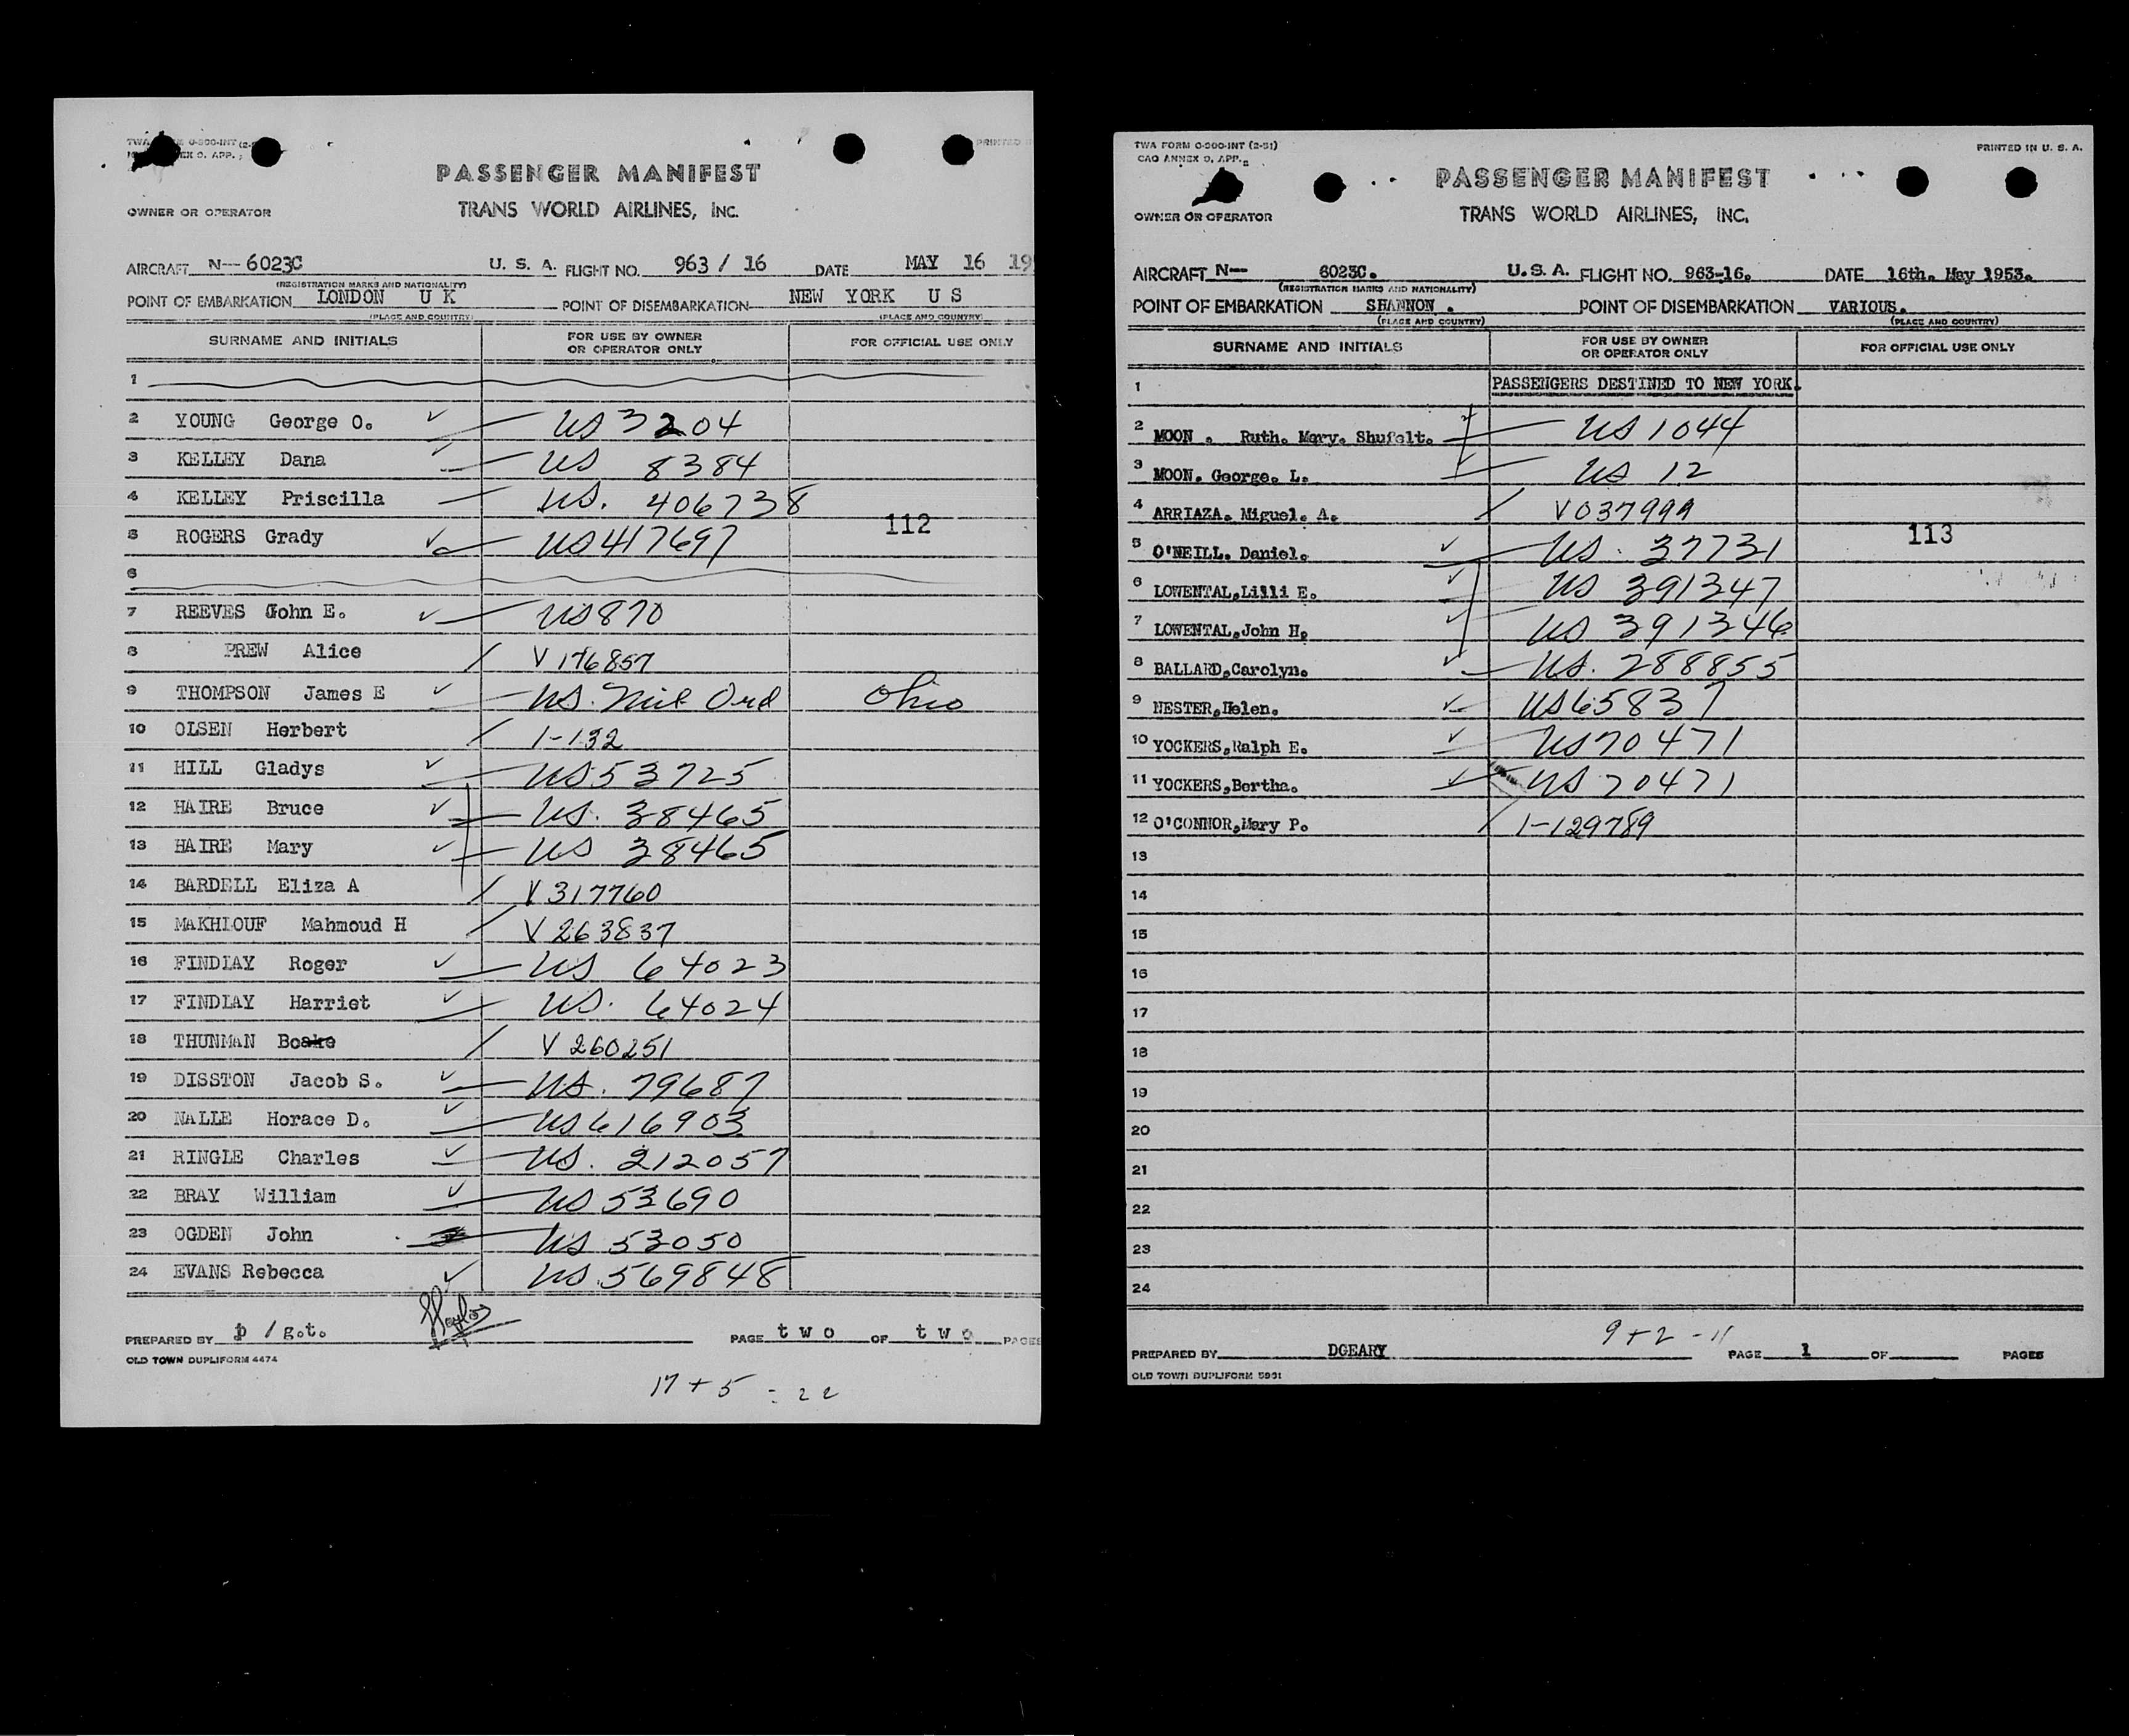 PASSENGER MANIFEST
OWNER OR OPERATOR TRANS WORLD AIRLINES, INC.
AIRCRAFT N-- 6023C U. S. A. FLIGHT NO. 963 / 16 DATE MAY 16 19
(REGISTRATION MARKS AND NATIONALITY)
POINT OF EMBARKATION LONDON U K POINT OF DISEMBARKATION NEW YORK U S
(PLACE AND COUNTRY) (PLACE AND COUNTRY)
SURNAME AND INITIALS FOR USE BY OWNER OR OPERATOR ONLY FOR OFFICIAL USE ONLY
1
2 YOUNG George O. US 3204
3 KELLEY Dana US 8384
4 KELLEY Priscilla US. 406738
112
5 ROGERS Grady US 417697
6
7 REEVES John E. US 870
8 PREW Alice V 176857
9 THOMPSON James E US. Mil Ord Ohio
10 OLSEN Herbert 1-132
11 HILL Gladys US 53725
12 HAIRE Bruce US. 38465
13 HAIRE Mary US 38465
14 BARDELL Eliza A V 317760
15 MAKHLOUF Mahmoud H V 263837
16 FINDLAY Roger US 64023
17 FINDLAY Harriet US. 64024
18 THUNMAN Bo V 260251
19 DISSTON Jacob S. US. 79687
20 NALLE Horace D. US 616903
21 RINGLE Charles US. 212057
22 BRAY William US 53690
23 OGDEN John US 53050
24 EVANS Rebecca US. 569848
PREPARED BY p / g.t. PAGE two OF two PAGES
OLD TOWN DUPLIFORM 4474
17 + 5 = 22
TWA FORM O-900-INT (2-51) PRINTED IN U. S. A.
CAO ANNEX 9, APP. 2
PASSENGER MANIFEST
OWNER OR OPERATOR TRANS WORLD AIRLINES, INC.
AIRCRAFT N-- 6023C. U.S.A. FLIGHT NO. 963-16. DATE 16th. May 1953.
(REGISTRATION MARKS AND NATIONALITY)
POINT OF EMBARKATION SHANNON . POINT OF DISEMBARKATION VARIOUS.
(PLACE AND COUNTRY) (PLACE AND COUNTRY)
SURNAME AND INITIALS FOR USE BY OWNER OR OPERATOR ONLY FOR OFFICIAL USE ONLY
1 PASSENGERS DESTINED TO NEW YORK.
2 MOON . Ruth. Mary. Shufelt. US 1044
3 MOON. George. L. US 12
4 ARRIAZA. Miguel. A. V037999
113
5 O'NEILL. Daniel. US. 37731
6 LOWENTAL,Lilli E. US 391347
7 LOWENTAL,John H. US 391346
8 BALLARD,Carolyn. US. 288855
9 NESTER,Helen. US 65837
10 YOCKERS,Ralph E. US 70471
11 YOCKERS,Bertha. US 70471
12 O'CONNOR,Mary P. 1-129789
13
14
15
16
17
18
19
20
21
22
23
24
9 + 2 - 11
PREPARED BY DGEARY PAGE 1 OF PAGES
OLD TOWN DUPLIFORM 5931